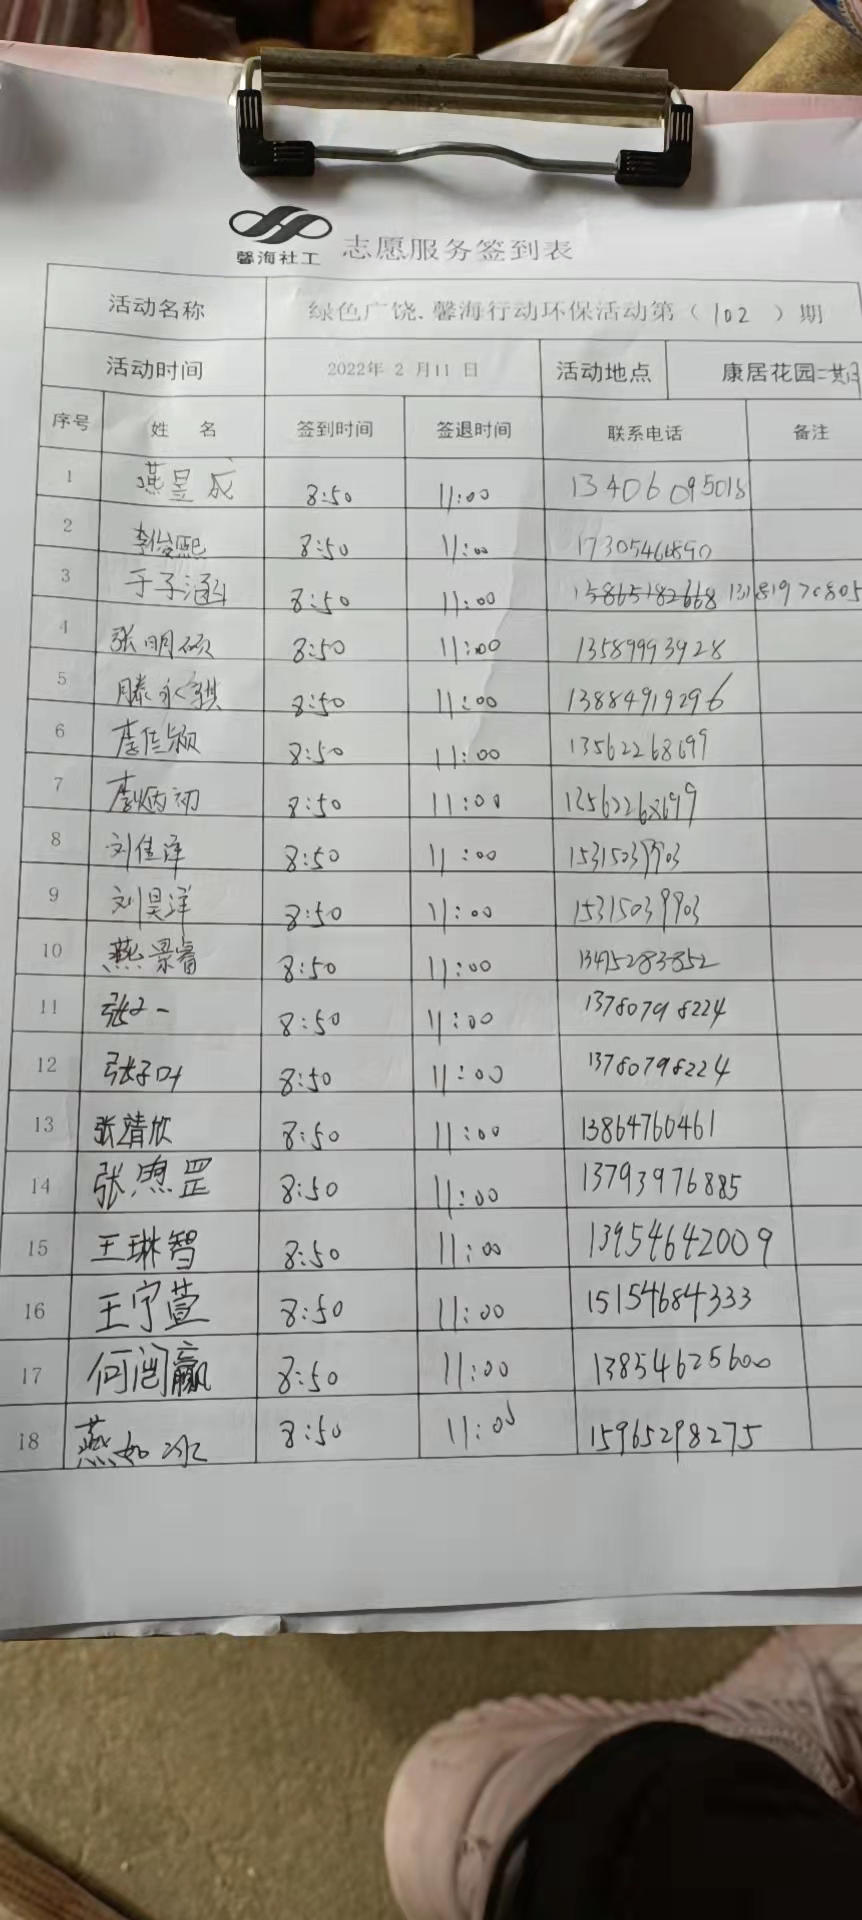 馨海社工 志愿服务签到表
活动名称 绿色广饶、馨海行动环保活动第（102）期
活动时间 2022年 2 月11 日 活动地点 康居花园二期
序号 姓 名 签到时间 签退时间 联系电话 备注
1 燕昱成 8:50 11:00 13406095018
2 李俊熙 8:50 11:00 17305466890
3 于子涵 8:50 11:00 15865182668 13181970805
4 张明硕 8:50 11:00 13589993928
5 滕永骐 8:50 11:00 13884919296
6 李佳颖 8:50 11:00 13562268699
7 李炳初 8:50 11:00 13562268699
8 刘佳泽 8:50 11:00 15315039903
9 刘昊洋 8:50 11:00 15315039903
10 燕景睿 8:50 11:00 13475283852
11 张子一 8:50 11:00 13780798224
12 张子叶 8:50 11:00 13780798224
13 张靖欣 8:50 11:00 13864760461
14 张 罡 8:50 11:00 13793976885
15 王琳智 8:50 11:00 13954642009
16 王宁萱 8:50 11:00 15154684333
17 何闰赢 8:50 11:00 13854625600
18 燕如冰 8:50 11:00 15965298275